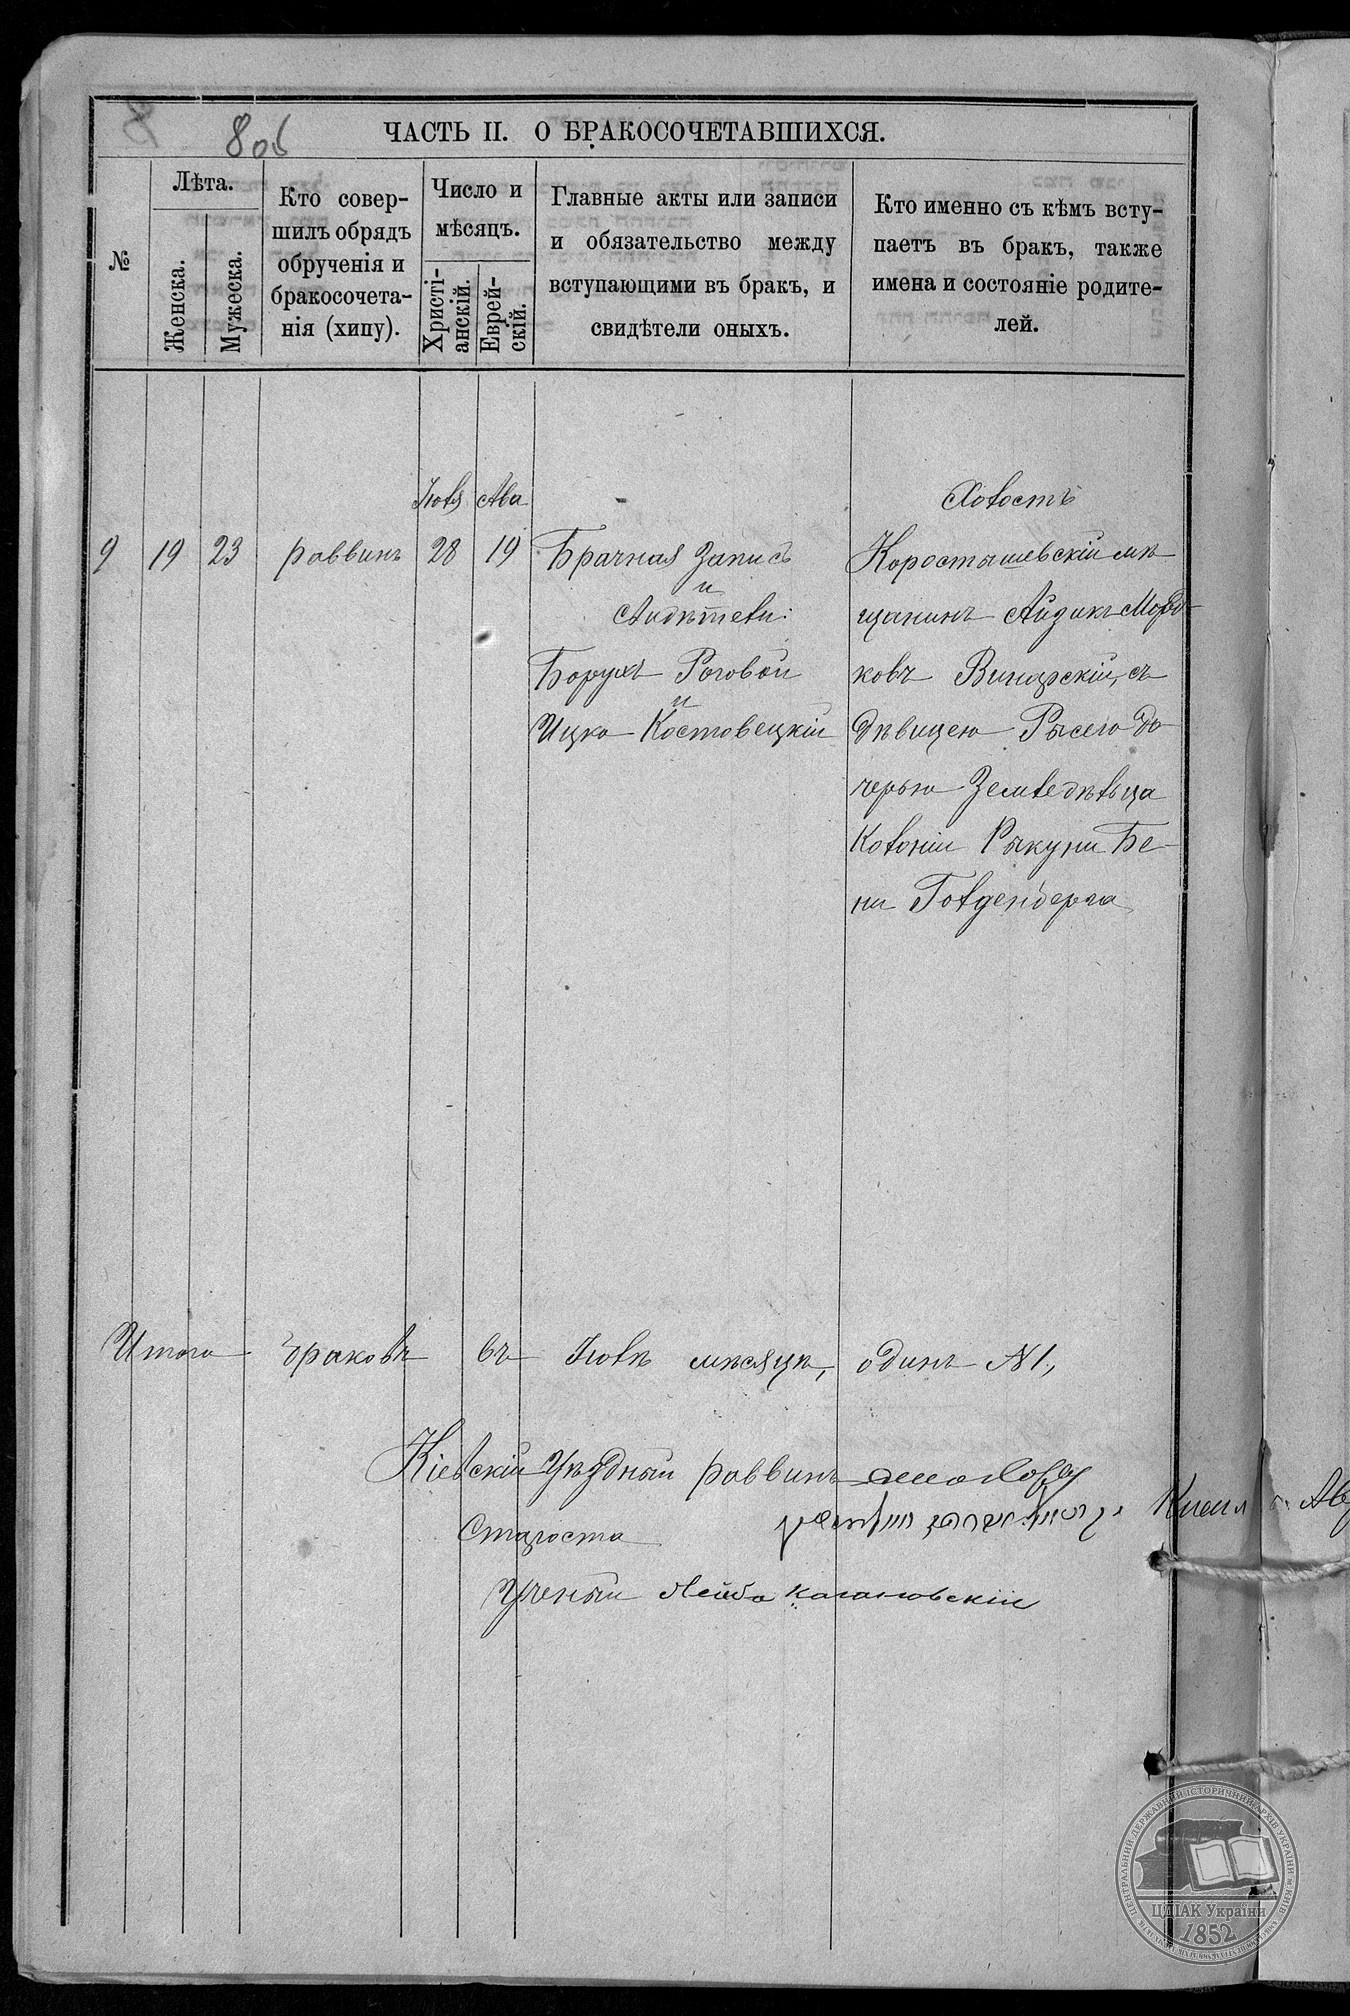 80б
ЧАСТЬ II. О БРАКОСОЧЕТАВШИХСЯ.
№
Лѣта.
Женска.
Мужеска.
Кто совер-
шилъ обрядъ
обрученія и
бракосочета-
нія (хипу).
Число и
мѣсяцъ.
Христі-
анскій.
Еврей-
скій.
Главные акты или записи
и обязательство между
вступающими въ брак, и
свидѣтели оныхъ.
Кто именно съ кѣмъ всту-
паетъ въ бракъ, также
имена и состояніе родите-
лей.
Іюля Ава
9 19 23 раввинъ 28 19
Брачная Запись
и
Свидѣтели:
Борухъ Роговой
и
Ицко Костовецкій
Холостъ
Коростышевскій мѣ-
щанинъ Айзикъ Морд-
ковъ Винарскій, съ
дѣвицею Рысею до-
черью Земледѣльца
Колоніи Рыкуни Бе-
ни Голденберга
Итого браковъ въ Іюлѣ мѣсяцѣ, одинъ №1,
Кіевскій Уѣздный раввинъ
Староста
Ученый Лейба Кагановскій
ЦЕНТРАЛЬНИЙ ДЕРЖАВНИЙ ІСТОРИЧНИЙ АРХІВ УКРАЇНИ м. КИЇВ
ЦДІАК України
1852